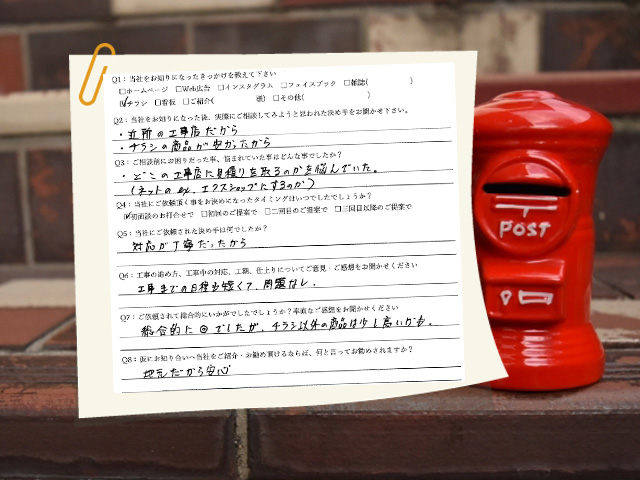 Q1：当社をお知りになったきっかけを教えて下さい
□ホームページ □Web広告 □インスタグラム □フェイスブック □雑誌( )
☑チラシ □看板 □ご紹介( 様) □その他( )
Q2：当社をお知りになった後、実際にご相談してみようと思われた決め手をお聞かせ下さい。
・近所の工事店だから
・チラシの商品が安かったから
Q3：ご相談前にお困りだった事、悩まれていた事はどんな事でしたか？
・どこの工事店に見積りを取るのかを悩んでいた。
(ネットの ex. エクスショップにするのか)
Q4：当社にご依頼頂く事をお決めになったタイミングはいつでしたでしょうか？
☑初面談のお打合せで □初回のご提案で □二回目のご提案で □三回目以降のご提案で
Q5：当社にご依頼された決め手は何でしたか？
対応が丁寧だったから
Q6：工事の進め方、工事中の対応、工期、仕上りについてご意見・ご感想をお聞かせください
工事までの日程も短くて、問題なし。
Q7：ご依頼されて総合的にいかがでしたでしょうか？率直なご感想をお聞かせください
総合的に◎でしたが、チラシ以外の商品は少し高いかも。
Q8：仮にお知り合いへ当社をご紹介・お勧め頂けるならば、何と言ってお勧めされますか？
地元だから安心
POST